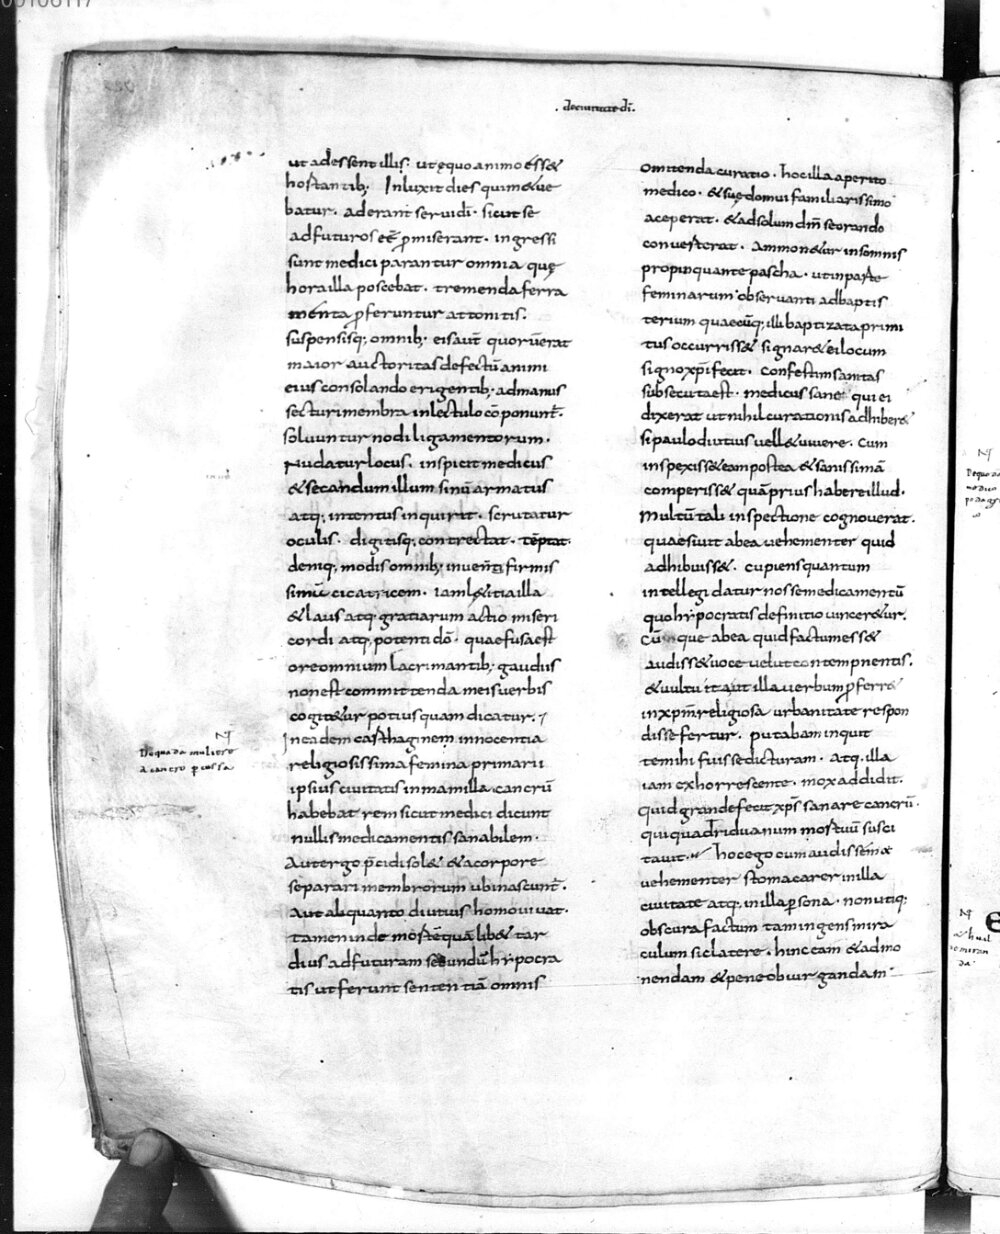 00106117
. deciuitate dī.
ut adessent illis. ut ęquo animo esset
hostantib; Inluxit dies qui metue
batur. aderant serui dī. sicut se
adfuturos eē p̱miserant. ingressi
sunt medici parantur omnia quę
hora illa poscebat. tremenda ferra
menta p̱feruntur attonitis.
suspensisq; omnib; eis aut̄ quorū erat
maior auctoritas defectū animi
eius consolando erigentib; ad manus
secturi membra in lectulo cōponunt̄.
soluuntur nodi ligamentorum.
Nudatur locus. inspicit medicus
& secandum illum sinū armatus
atq; intentus inquirit. scrutatur
oculis. digitisq; contrectat. tēptat
deniq; modis omnib; inuenit firmis
simā cicatricem. iam l&itia illa
& laus atq; gratiarum actio miseri
cordi atq; potenti dō. quae fusa est
ore omnium lacrimantib; gaudiis
non est committenda meis uerbis
cogit&ur potius quam dicatur.
In eadem casthagine innocentia
religiosissima femina primarii
ipsius ciuitatis in mamilla cancrū
habebat rem sicut medici dicunt
nullis medicamentis sanabilem.
Aut ergo p̄cidi sol& & a corpore
separari membrorum ubi nascunt̄.
Aut aliquanto diutius homo uiuat.
tamen inde mortē quālib& tar
dius adfuturam secundū hypocra
tis ut ferunt sententiā omnis
omitenda curatio. hoc illa aperito
medico. & suę domui familiarissimo
aceperat. & ad solum dm̄ se orando
conuerterat. Ammon&ur in somnis
propinquante pascha. ut in parte
feminarum obseruanti ad baptis
terium quaecūq; illi baptizata primi
tus occurriss& signar& ei locum
signo xp̄i fecit. confestim sanitas
subsecuta est. medicus sane qui ei
dixerat ut nihil curationis adhiber&
si paulo diutius uell& uiuere. cum
inspexiss& eam postea & sanissimā
comperiss& quā prius habere illud.
Multū tali inspectione cognouerat.
quaesiuit ab ea uehementer quid
adhibuiss&. cupiens quantum
intellegi datur nosse medicamentū
quo hypocratis definitio uincer&ur.
Cūmque ab ea quid factum ess&
audiss& uoce uelut contempnentis.
& uultu ita ut illa uerbum p̱ferr&
in xp̄m religiosa urbanitate respon
disse fertur. putabam inquit
te mihi fuisse dicturam. atq; illa
iam exhorrescente. mox addidit.
quid grande fecit xp̄s sanare cancrū.
qui quadriduanum mortuū susci
tauit. hoc ego cum audissem &
uehementer stomacarer in illa
ciuitate atq; in illa p̱sona. non utiq;
obscura factum tam ingens mira
culum sic latere. hinc eam & admo
nendam & pene obiurgandam
Nt̄
De quada muliere
a cancro p̱cussa